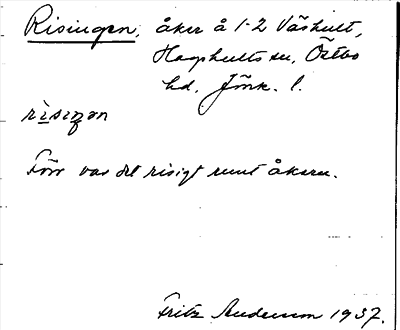 Risingen, åker å 1-2 Våshult,
Hagshults sn, Östbo
hd, Jönk. l.
risiŋən
Förr var det risigt runt åkern.
Fritz Andersson 1937.